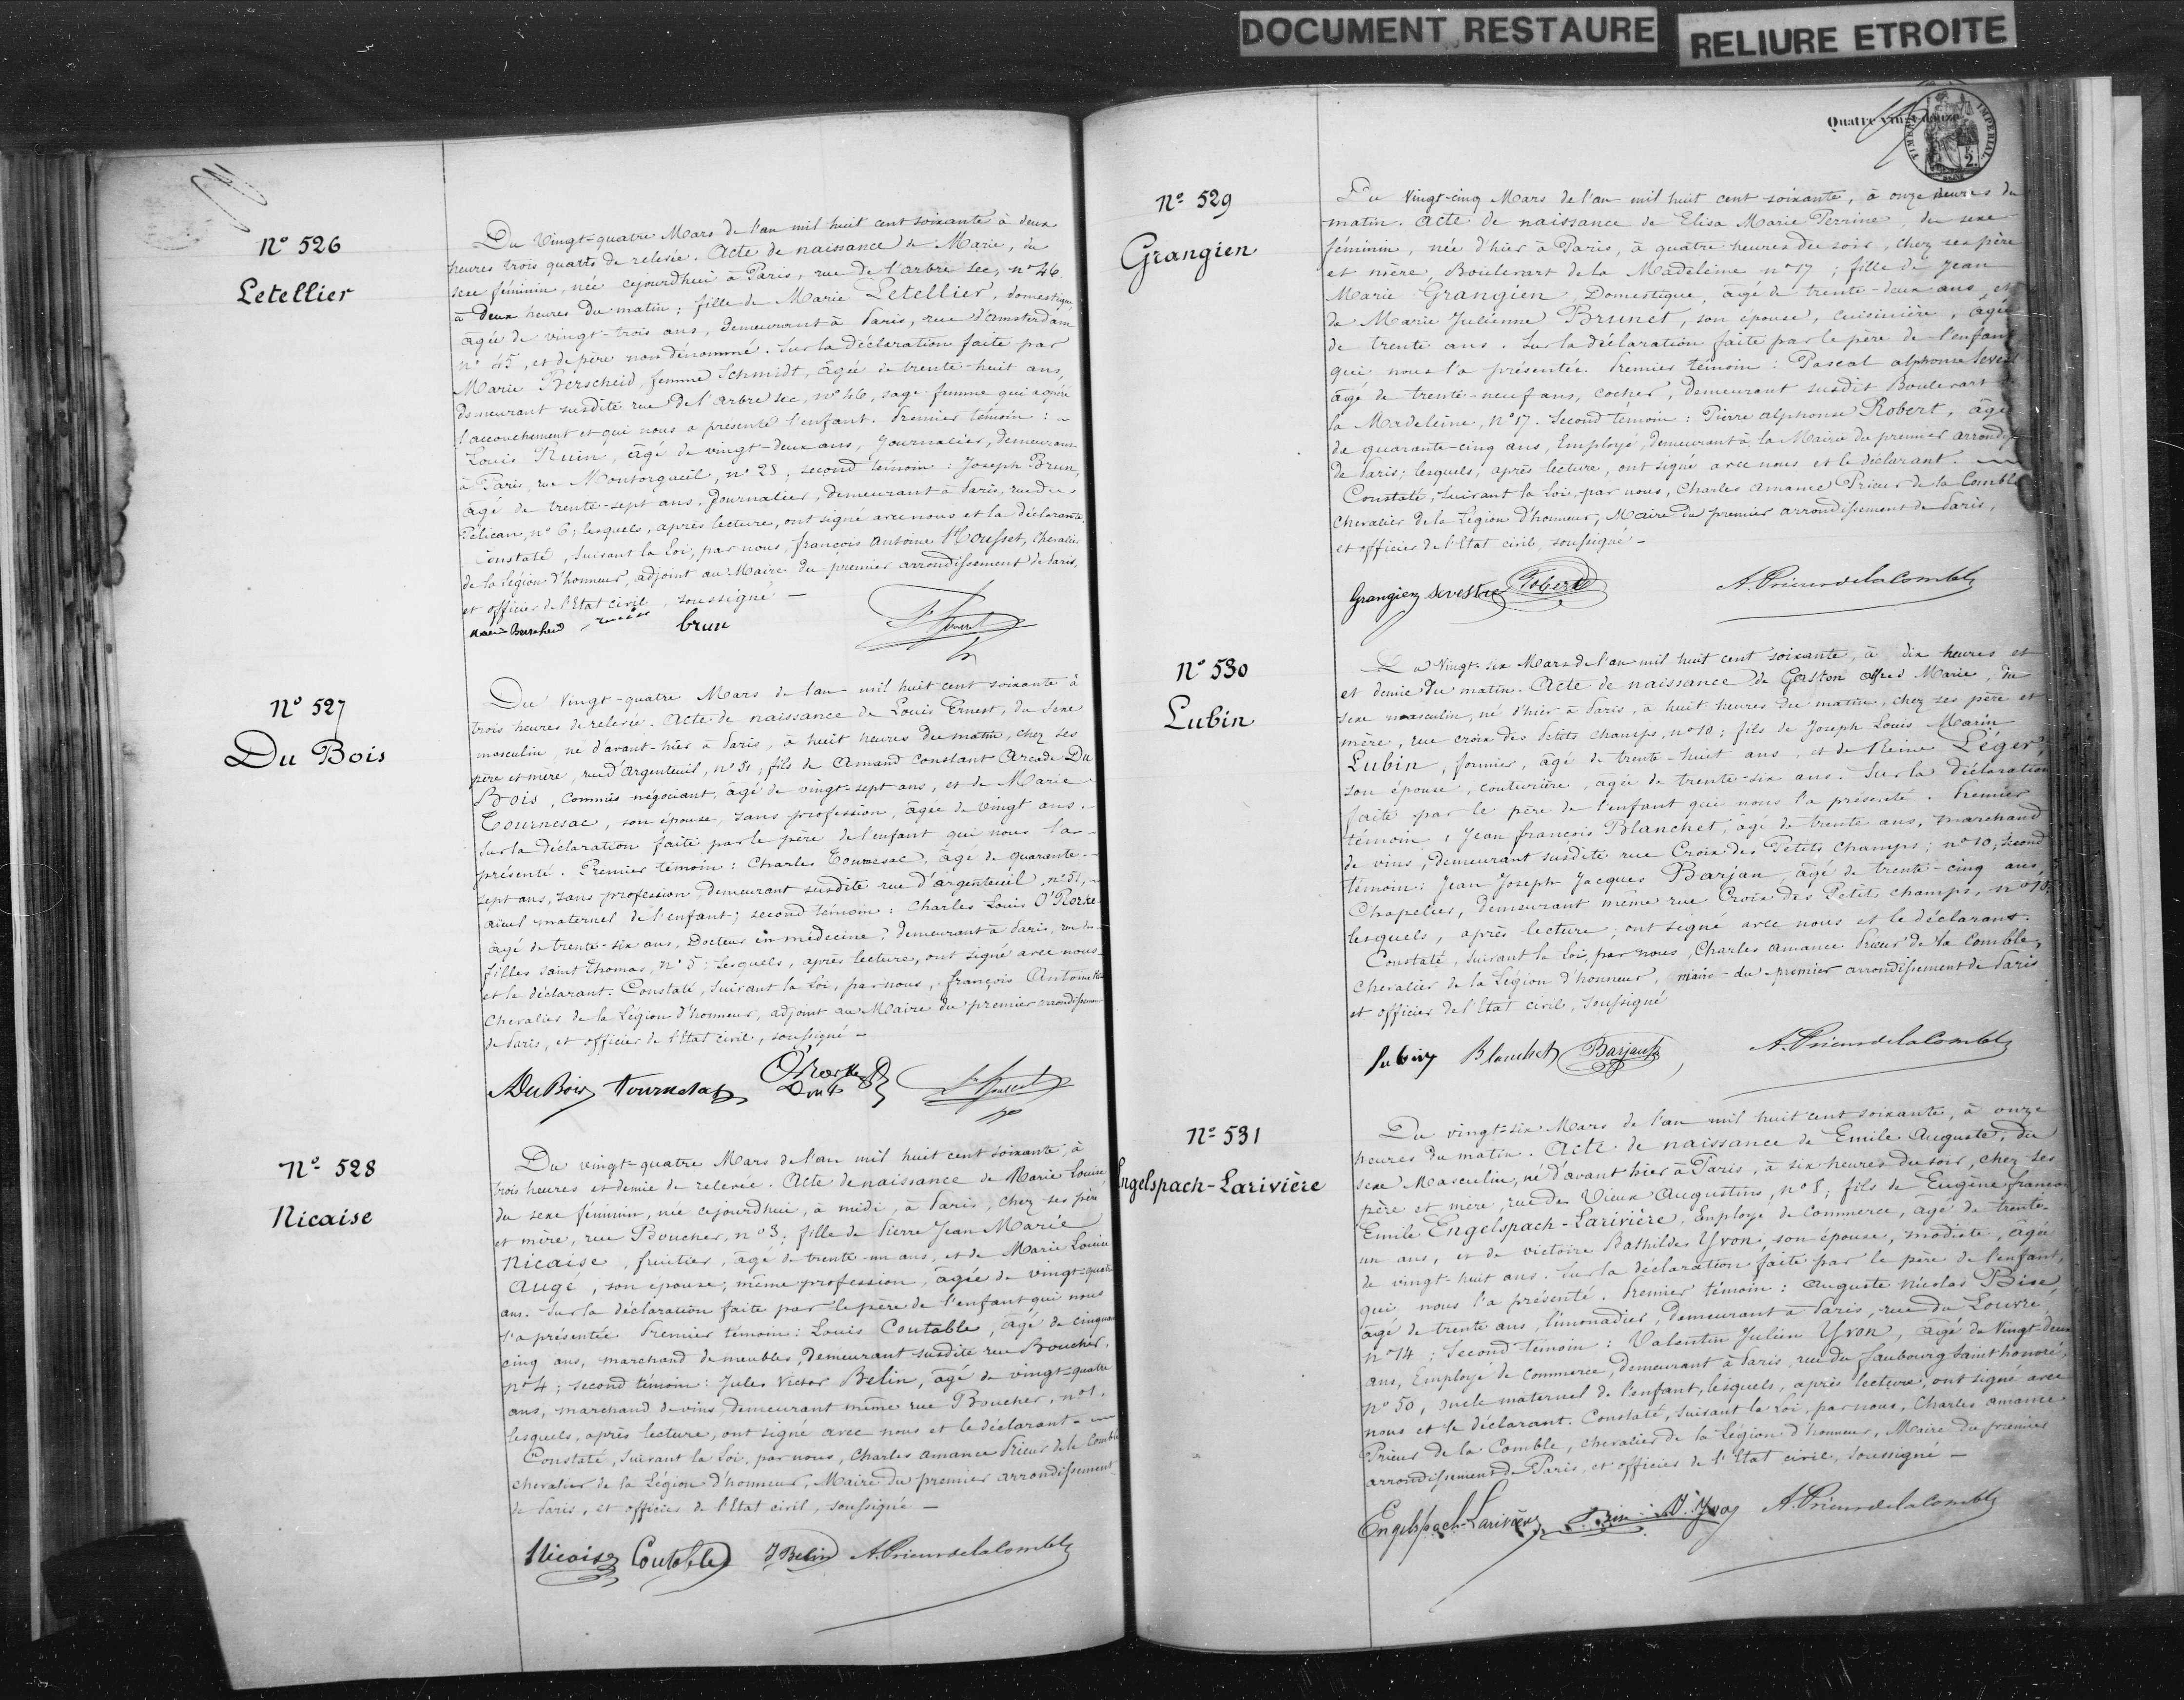 DOCUMENT RESTAURE
RELIURE ETROITE
N° 526
Letellier
Du Vingt-quatre Mars de l'an mil huit cent soixante à deux
heures trois quarts de relevée. Acte de naissance de Marie, du
sexe féminin, née cejourd'hui à Paris, rue de l'arbre sec, n° 46.
à deux heures du matin; fille de Marie Letellier, domestique,
âgée de vingt-trois ans, demeurant à Paris, rue d'amsterdam
n° 45, et de père non dénommé. Sur la déclaration faite par
Marie Berscheid, femme Schmidt, âgée de trente-huit ans,
demeurant susdite rue de l'arbre sec, n° 46, sage-femme qui a opéré
l'accouchement et qui nous a présenté l'enfant. Premier témoin : -
Louis Ruin, âgé de vingt-deux ans, journalier, demeurant
à Paris, rue Montorgueil, n° 28; second témoin : Joseph Brun,
âgé de trente-sept ans, Journalier, demeurant à Paris, rue du
Pélican, n° 6; lesquels, après lecture, ont signé avec nous et la déclarante.
Constaté, suivant la Loi, par nous, françois Antoine Housset, Chevalier
de la Légion d'honneur, adjoint au Maire du premier arrondissement de Paris,
et officier de l'Etat civil, soussigné -
Marie Berscheid brun
N° 527
Du Bois
Du Vingt-quatre Mars de l'an mil huit cent soixante à
trois heures de relevée. Acte de naissance de Louis Ernest, du sexe
masculin, né d'avant-hier à Paris, à huit heures du matin, chez ses
père et mère, rue d'Argenteuil, n° 51, fils de Amand Constant Arcade Du
Bois, Commis négociant, âgé de vingt-sept ans, et de Marie
Tournesac, son épouse, sans profession, âgée de vingt ans. -
Sur la déclaration faite par le père de l'enfant qui nous l'a -
présenté. Premier témoin : Charles Tournesac, âgé de quarante-
sept ans, sans profession, demeurant susdite rue d'argenteuil, n° 51, -
aïeul maternel de l'enfant; second témoin : Charles Louis O'Rorke
âgé de trente-six ans, Docteur en médecine, demeurant à Paris, rue des
filles saint Thomas, n° 5; Lesquels, après lecture, ont signé avec nous
et le déclarant. Constaté, suivant la Loi, par nous, françois Antoine
Chevalier de la Légion d'honneur, adjoint au Maire du premier arrondissement
de Paris, et officier de l'Etat civil, soussigné -
ADuBois Tournesac O'Rorke
N° 528
Nicaise
Du vingt-quatre Mars de l'an mil huit cent soixante, à
trois heures et demie de relevée. Acte de naissance de Marie Louise
du sexe féminin, née cejourd'hui, à midi, à Paris, chez ses père
et mère, rue Boucher, n° 3; fille de Pierre Jean Marie
Nicaise, fruitier, âgé de trente-un ans, et de Marie Louise
Augé, son épouse, même profession, âgée de vingt-quatre
ans. Sur la déclaration faite par le père de l'enfant qui nous
l'a présentée. Premier témoin : Louis Coutable, âgé de cinquante
cinq ans, marchand de meubles, demeurant susdite rue Boucher,
n° 4; second témoin : Jules Victor Belin, âgé de vingt-quatre
ans, marchand de vins, demeurant même rue Boucher, n° 1,
lesquels, après lecture, ont signé avec nous et le déclarant. -
Constaté, suivant la Loi, par nous, Charles Amance Prieur de la Comble
chevalier de la Légion d'honneur, Maire du premier arrondissement
de Paris, et officier de l'Etat civil, soussigné -
Nicaise Coutable J Belin A. Prieur de la Comble
Quatre vingt-douze
TIMBRE IMPERIAL
2.
N° 529
Grangien
Du Vingt-cinq Mars de l'an mil huit cent soixante, à onze heures du
matin. Acte de naissance de Elisa Marie Perrine, du sexe
féminin, née d'hier à Paris, à quatre heures du soir, chez ses père
et mère, Boulevart de la Madeleine n° 17; fille de Jean
Marie Grangien, Domestique, âgé de trente-deux ans, et
de Marie Julienne Brunet, son épouse, cuisinière, âgée
de trente ans. Sur la déclaration faite par le père de l'enfant
qui nous l'a présentée. Premier témoin : Pascal alphonse
âgé de trente-neuf ans, cocher, demeurant susdit Boulevart de
la Madeleine, n° 17. Second témoin : Pierre alphonse Robert, âgé
de quarante-cinq ans, Employé, demeurant à la Mairie du premier arrondt
de Paris; lesquels, après lecture, ont signé avec nous et le déclarant.
Constaté, suivant la Loi, par nous, Charles Amance Prieur de la Comble
chevalier de la Légion d'honneur, Maire du premier arrondissement de Paris,
et officier de l'Etat civil, soussigné -
Grangien Sevestre Robert A. Prieur de la Comble
N° 530
Lubin
Du Vingt-six Mars de l'an mil huit cent soixante, à dix heures et
et demie du matin. Acte de naissance de Gaston alfred Marie, du
sexe masculin, né d'hier à Paris, à huit heures du matin, chez ses père et
mère, rue croix des Petits champs, n° 10; fils de Joseph Louis Marin
Lubin, formier, âgé de trente-huit ans, et de Reine Léger,
son épouse, couturière, âgée de trente-six ans. Sur la déclaration
faite par le père de l'enfant qui nous l'a présenté. Premier
témoin : Jean françois Blanchet, âgé de trente ans, marchand
de vins, demeurant susdite rue Croix des Petits champs, n° 10; second
témoin : Jean Joseph Jacques Barjan, âgé de trente-cinq ans,
Chapelier, demeurant même rue Croix des Petits champs, n° 10,
lesquels, après lecture, ont signé avec nous et le déclarant.
Constaté, suivant la Loi, par nous, Charles Amance Prieur de la Comble,
chevalier de la Légion d'honneur, maire du premier arrondissement de Paris
et officier de l'Etat civil, soussigné
Lubin Blanchet Barjan A. Prieur de la Comble
N° 531
Engelspach-Larivière
Du vingt-six Mars de l'an mil huit cent soixante, à onze
heures du matin. Acte de naissance de Emile Auguste, du
sexe Masculin, né d'avant hier à Paris, à six heures du soir, chez ses
père et mère, rue des Vieux Augustins, n° 8; fils de Eugène françois
Emile Engelspach-Larivière, Employé de Commerce, âgé de trente-
un ans, et de victoire Bathilde Yvon, son épouse, modiste, âgée
de vingt-huit ans. Sur la déclaration faite par le père de l'enfant,
qui nous l'a présenté. Premier témoin : Auguste Nicolas Bise,
âgé de trente ans, limonadier, demeurant à Paris, rue du Louvre,
n° 14; Second témoin : Valentin Julien Yvon, âgé de Vingt-deux
ans, Employé de commerce, demeurant à Paris, rue du faubourg saint honoré,
n° 50, oncle maternel de l'enfant, lesquels, après lecture, ont signé avec
nous et le déclarant. Constaté, suivant la Loi, par nous, Charles Amance
Prieur de la Comble, chevalier de la Légion d'honneur, Maire du premier
arrondissement de Paris, et officier de l'Etat civil, soussigné -
Engelspach-Larivière V. Yvon A. Prieur de la Comble